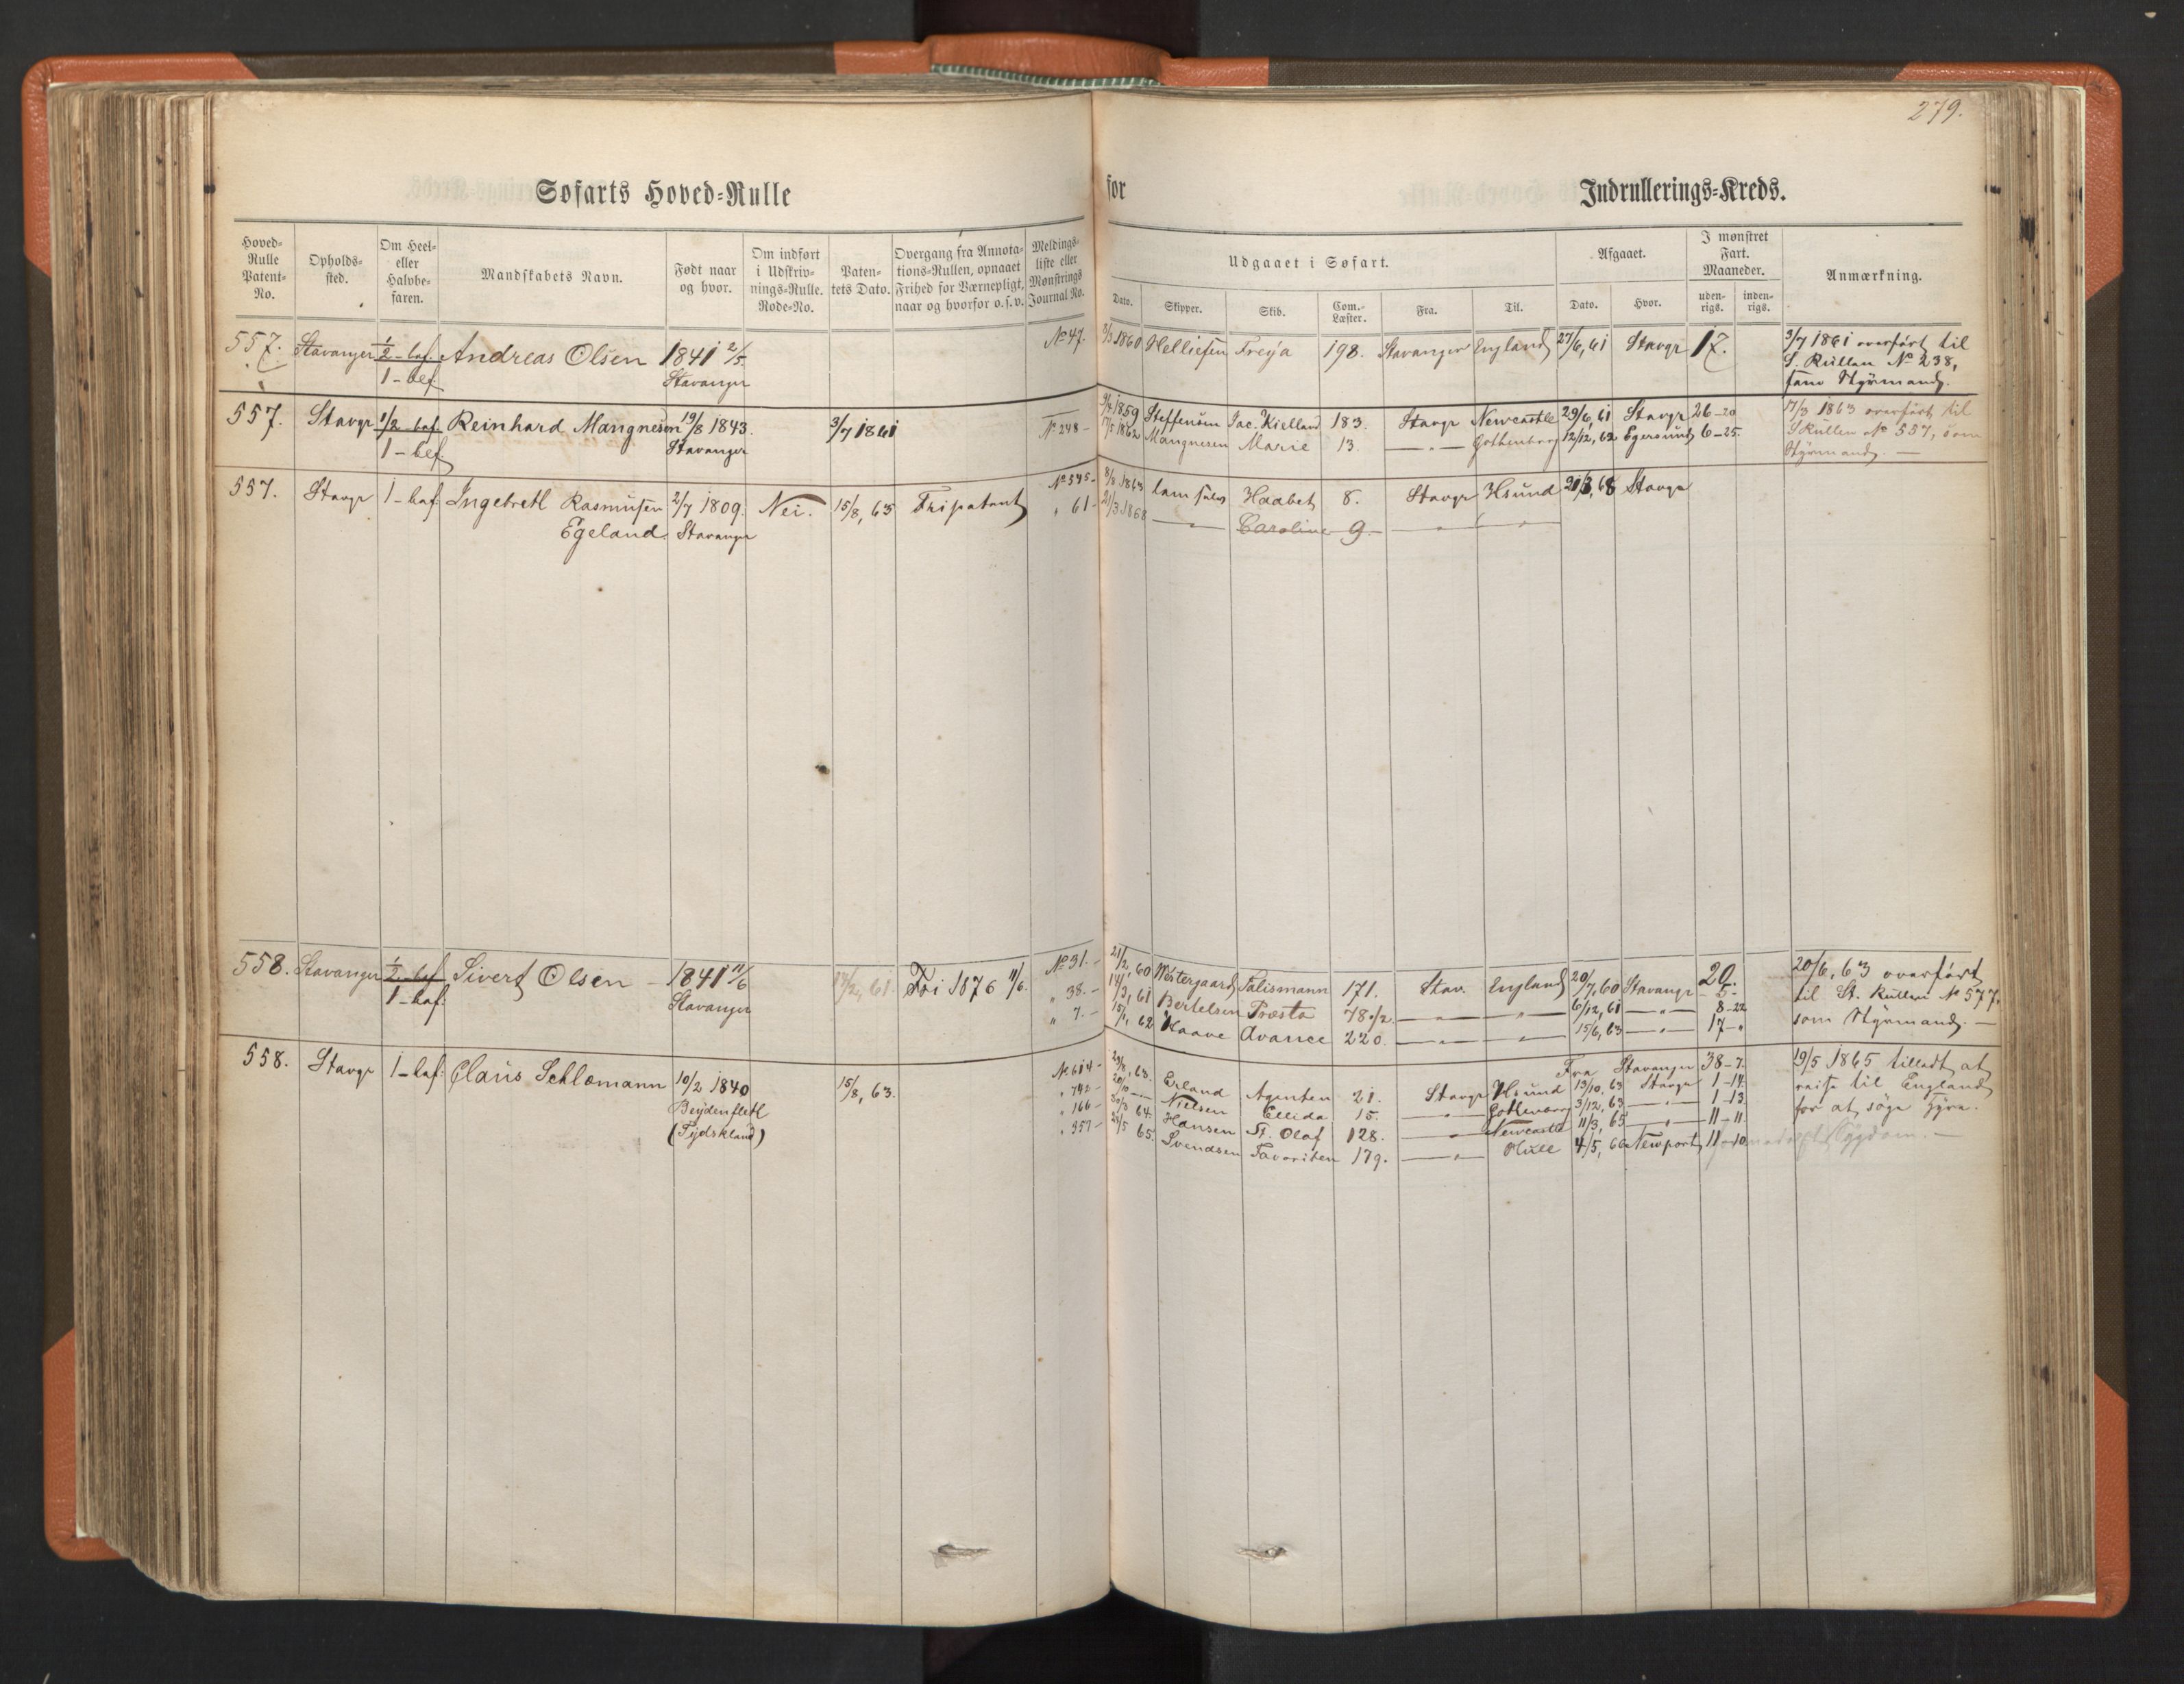 279.
Søfarts Hoved-Rulle for Indrullerings-Kreds.
Hoved-Rulle Patent-No. Opholds-sted. Om Heel- eller Halvbe-faren. Mandskabets Navn. Født naar og hvor. Om indført i Udskriv-nings-Rulle. Rode-No. Paten-tets Dato. Overgang fra Annota-tions-Rullen, opnaaet Frihed for Værnepligt, naar og hvorfor o.s.v. Meldings-liste eller Mønstrings Journal No.
Udgaaet i Søfart. Afgaaet. I mønstret Fart. Maaneder. Anmærkning.
Dato. Skipper. Skib. Com.-Læster. Fra. Til. Dato. Hvor. uden-rigs. inden-rigs.
557. Stavanger 1/2-bef. Andreas Olsen 1841 2/5. No 47. 3/3 1860 Helliesen Freya 198. Stavanger England 27/6, 61 Stavgr 17. 3/7 1861 overført til
1-bef. Stavanger S. Rullen No 238,
som Styrmand.
557. Stavgr 1/2 bef. Reinhard Mangnesen 19/8 1843. 3/7 1861 No 248 - 1859 Steffensen Jac. Kielland 183. Stavgr Newcastle 29/6, 61 Stavgr 26-20 17/3 1863 overført til
1-bef. Stavanger 1862 Mangnesen Marie 13. -"- Gothenborg 12/12, 62 Egersund 6-25. S Rullen No 557, som
Styrmand. -
557. Stavgr 1-bef. Ingebretl Rasmusen 2/7 1809. Nei. 15/8, 63 Fripatent No 545- 8/8 1863 ham selv Haabet 8. Stavgr Hsund 21/3, 68 Stavgr
Egeland. Stavangr " 61- 21/3 1868 -"- Caroline 9- -"- "
558. Stavanger 1/2-bef. Sivert Olsen - 1841 11/6 13/2, 61. Fri 1876 11/6. No 31.- 21/2, 60 Westergaard Talismann 171. Stav. England 20/7, 60 Stavangr 20. 20/6, 63 overført
1-bef. Stavanger " 38.- 14/3, 61 Bertelsen Præsto 78 1/2. -"- -"- 6/12, 61 -"- 8-22 til St. Rullen No 577,
" 7.- 15/1, 62 Haave Avance 220. -"- -"- 15/6, 63 -"- 17-" som Styrmand. -
558. Stavgr 1-bef. Claus Schlomann 10/2 1840 15/8, 63. Fra Stavanger 38-7. 29/5 1865 tilladt at
Beydenfletl No 614- 29/8, 63. Erland Agenten 21. Stavgr Hsund 13/10, 63 Stavgr 1-14. reise til England
(Tydskland) " 742- 20/10 -"- Nielsen Ellida 15. -"- Gothenborg 3/12, 63 -"- 1-13. for at søge Hyre.
" 166- 30/3 64. Hansen St. Olaf 128. -"- Newcastle 11/3, 65 -"- 11-11.
" 357- 24/5 65. Svendsen Favoriten 179. -"- 4/5, 66 Newport 11-10 Sygdom. -